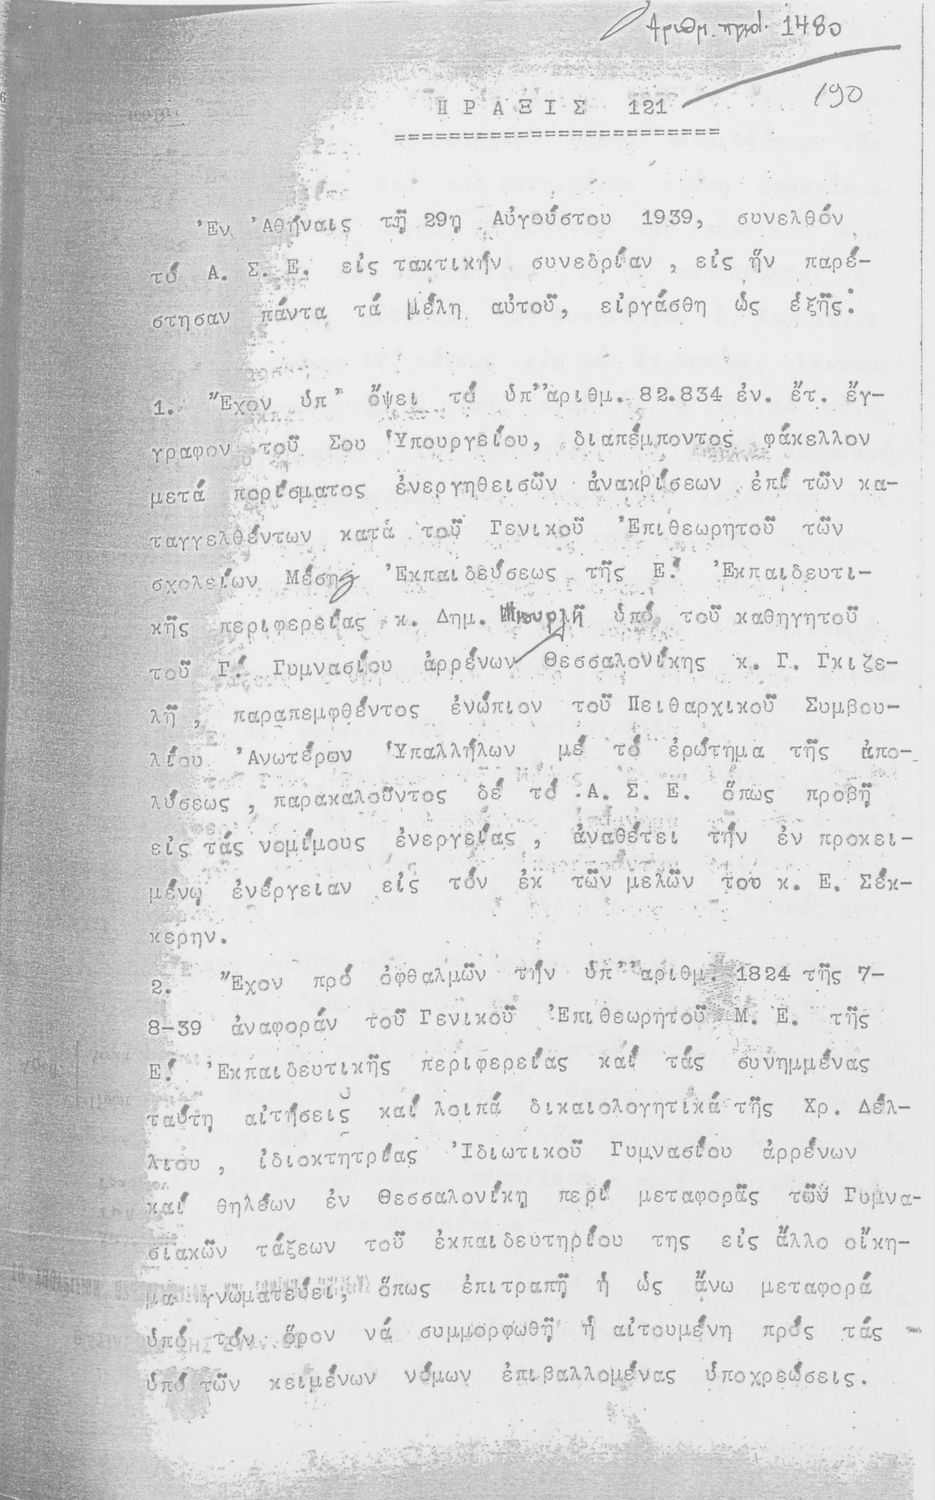 Αριθμ. πρωτ. 1480
190
ΠΡΑΞΙΣ 121
Ἐν Ἀθήναις τῇ 29ῃ Αὐγούστου 1939, συνελθόν
τό Α. Σ. Ε. εἰς τακτικήν συνεδρίαν, εἰς ἥν παρέ-
στησαν πάντα τά μέλη αὐτοῦ, εἰργάσθη ὡς ἑξῆς:
1. Ἔχον ὑπ' ὄψει τό ὑπ' ἀριθμ. 82.834 ἐν. ἔτ. ἔγ-
γραφον τοῦ Σου Ὑπουργείου, διαπέμποντος φάκελλον
μετά πορίσματος ἐνεργηθεισῶν ἀνακρίσεων ἐπί τῶν κα-
ταγγελθέντων κατά τοῦ Γενικοῦ Ἐπιθεωρητοῦ τῶν
σχολείων Μέσης Ἐκπαιδεύσεως τῆς Ε! Ἐκπαιδευτι-
κῆς περιφερείας κ. Δημ. ὑπό τοῦ καθηγητοῦ
τοῦ Γ! Γυμνασίου ἀρρένων Θεσσαλονίκης κ. Γ. Γκιζε-
λῆ, παραπεμφθέντος ἐνώπιον τοῦ Πειθαρχικοῦ Συμβου-
λίου Ἀνωτέρων Ὑπαλλήλων μέ τό ἐρώτημα τῆς ἀπο-
λύσεως, παρακαλοῦντος δέ τό Α. Σ. Ε. ὅπως προβῇ
εἰς τάς νομίμους ἐνεργείας, ἀναθέτει τήν ἐν προκει-
μένῳ ἐνέργειαν εἰς τόν ἐκ τῶν μελῶν του κ. Ε. Σέκ-
κερην.
2. Ἔχον πρό ὀφθαλμῶν τήν ὑπ' ἀριθμ. 1824 τῆς 7-
8-39 ἀναφοράν τοῦ Γενικοῦ Ἐπιθεωρητοῦ Μ. Ε. τῆς
Ε! Ἐκπαιδευτικῆς περιφερείας καί τάς συνημμένας
ταύτῃ αἰτήσεις καί λοιπά δικαιολογητικά τῆς Χρ. Δέλ-
λιου, ἰδιοκτητρίας Ἰδιωτικοῦ Γυμνασίου ἀρρένων
καί θηλέων ἐν Θεσσαλονίκῃ περί μεταφορᾶς τῶν Γυμνα-
σιακῶν τάξεων τοῦ ἐκπαιδευτηρίου της εἰς ἄλλο οἴκη-
μα γνωματεύει, ὅπως ἐπιτραπῇ ἡ ὡς ἄνω μεταφορά
ὑπό τόν ὅρον νά συμμορφωθῇ ἡ αἰτουμένη πρός τάς
ὑπό τῶν κειμένων νόμων ἐπιβαλλομένας ὑποχρεώσεις.